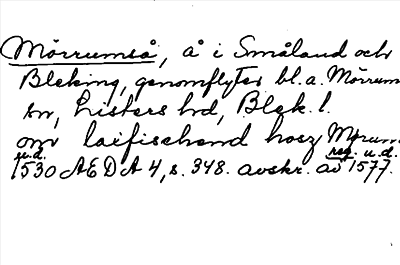 Mörrumså, å i Småland och
Bleking, genomflyter bl.a. Mörrum
sn, Listers hd, Blek. l.
om laxfischend hosz Mörum
u.d. reg. u.d.
1530 AEDA 4, s. 348. avskr. av 1577.